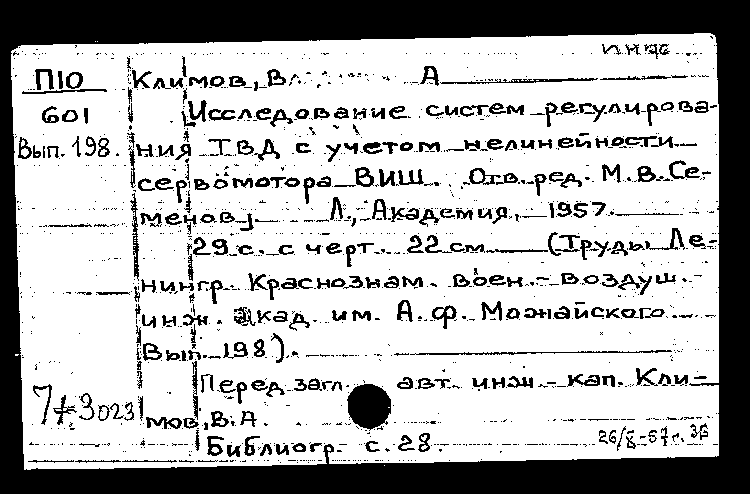 П10
601
Вып. 198.
Климов, В А
Исследование систем регулирова-
ния ТВД с учетом нелинейности
сервомотора ВИШ. Отв. ред. М. В. Се-
менов]. Л., Академия, 1957.
29 с. с черт. 22 см (Труды Ле-
нингр. Краснознам. воен.-воздуш.
инж. акад. им. А. Ф. Можайского.
Вып. 198).
Перед загл. авт. инж.-кап. Кли-
мов, В. А.
Библиогр. с. 28.
3023